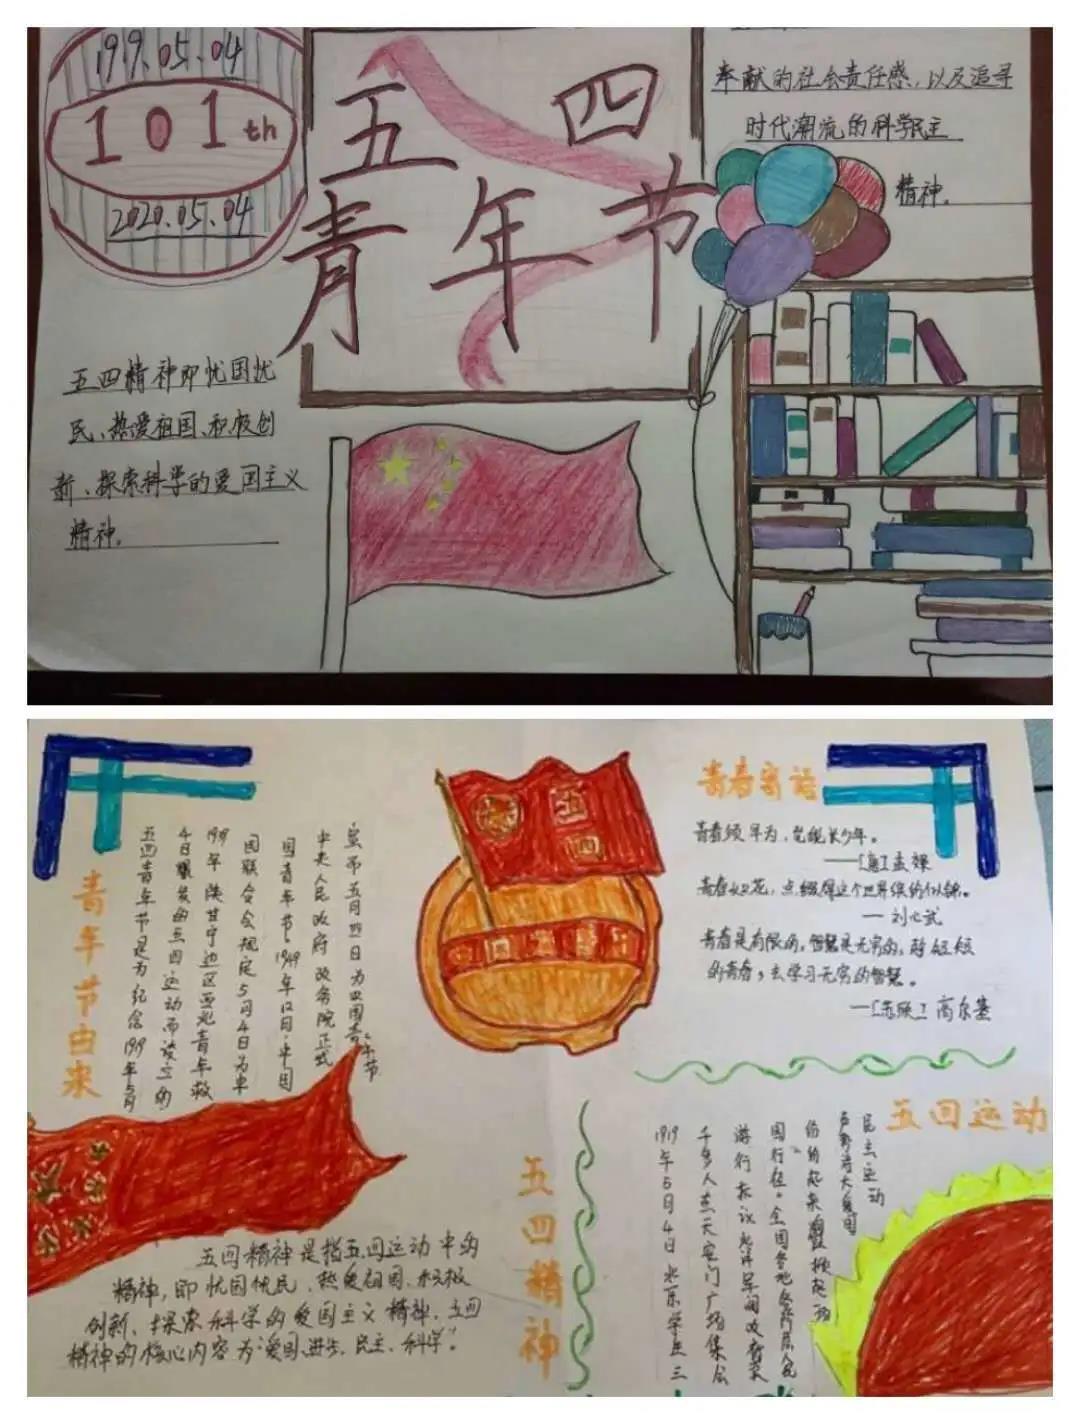 1919.05.04
101th
2020.05.04
五四
青年节
奉献的社会责任感,以及追寻
时代潮流的科学民主
精神.
五四精神即忧国忧
民、热爱祖国、积极创
新、探索科学的爱国主义
精神.
青年节由来
五四青年节是为纪念1919年5月
4日爆发的五四运动而设立的
1939年陕甘宁边区西北青年救
国联合会规定5月4日为中
国青年节。1949年12月,中国
中央人民政府政务院正式
宣布五月四日为中国青年节
五四
青春寄语
青春须早为,岂能长少年。
——[唐]孟郊
青春如花,点缀得这个世界缤纷似锦。
— 刘心武
青春是有限的,智慧是无穷的,趁短短
的青春,去学习无穷的智慧。
—[苏联]高尔基
五四运动
1919年5月4日北京学生三
千多人在天安门广场集会
游行抗议北洋军阀政府卖
国行径。全国各地各阶层人民
纷纷起来
声势浩大爱国
民主运动
五四精神
五四精神是指五四运动中的
精神,即忧国忧民、热爱祖国、积极
创新、探索科学的爱国主义精神,五四
精神的核心内容为“爱国、进步、民主、科学”。